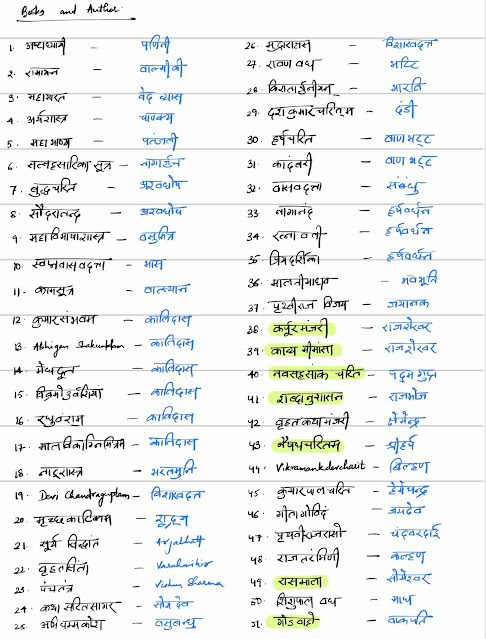 Books and Author
1. अष्टाध्यायी – पाणिनी
2. रामायन – वाल्मीकी
3. महाभारत – वेद व्यास
4. अर्थशास्त्र – चाणक्य
5. महा भाष्य – पतंजली
6. सत्सहसारिका सूत्र – नागार्जुन
7. बुद्धचरित – अश्वघोष
8. सौंदरानन्द – अश्वघोष
9. महाविभाषाशास्त्र – वसुमित्र
10. स्वप्नवासवदत्ता – भास
11. कामसूत्र – वात्स्यान
12. कुमारसंभवम – कालिदास
13. Abhigan Shakuntlam – कालिदास
14. मेघदूत – कालिदास
15. विक्रमोउर्वशियां – कालिदास
16. रघुवंशम – कालिदास
17. मालविकाग्निमित्रम – कालिदास
18. नाट्रशास्त्र – भरतमुनि
19. Devi Chandraguptam – विशाखदत्त
20. मृच्छकाटिकम – शूद्रक
21. सूर्य सिद्धांत – Aryabhatt
22. वृहतसिंता – Varahmihir
23. पंचतंत्र – Vishnu Sharma
24. कथा सरितसागर – सोम देव
25. अभीधम्मकोश – वसुबन्धु
26. मुद्राराक्षस – विशाखदत्त
27. रावण वध – भट्टि
28. किरातार्जुनीयम – भारवि
29. दशकुमारचरितम – दंडी
30. हर्षचरित – वाणभट्ट
31. कादंबरी – वाण भट्ट
32. वासवदत्ता – संबंधु
33. नागानंद – हर्षवर्धन
34. रत्नावली – हर्षवर्धन
35. प्रियदर्शिका – हर्षवर्धन
36. मालतीमाधव – भवभूति
37. पृथ्वीराज विजय – जयानक
38. कर्पूरमंजरी – राजशेखर
39. काव्य मीमांसा – राजशेखर
40. नवसहसांक चरित – पदुम गुप्त
41. शब्दानुशासन – राजभोज
42. वृहतकथामंजरी – क्षेमेन्द्र
43. नैषधचरितम – श्रीहर्ष
44. Vikramankdevcharit – बिल्हण
45. कुमारपालचरित – हेमचन्द्र
46. गीतगोविंद – जयदेव
47. पृथवीराजरासो – चंदवरदाई
48. राजतरंगिणी – कल्हण
49. रासमाला – सोमेश्वर
50. शिशुपाल वध – माघ
51. गौडवाहो – वाकपति